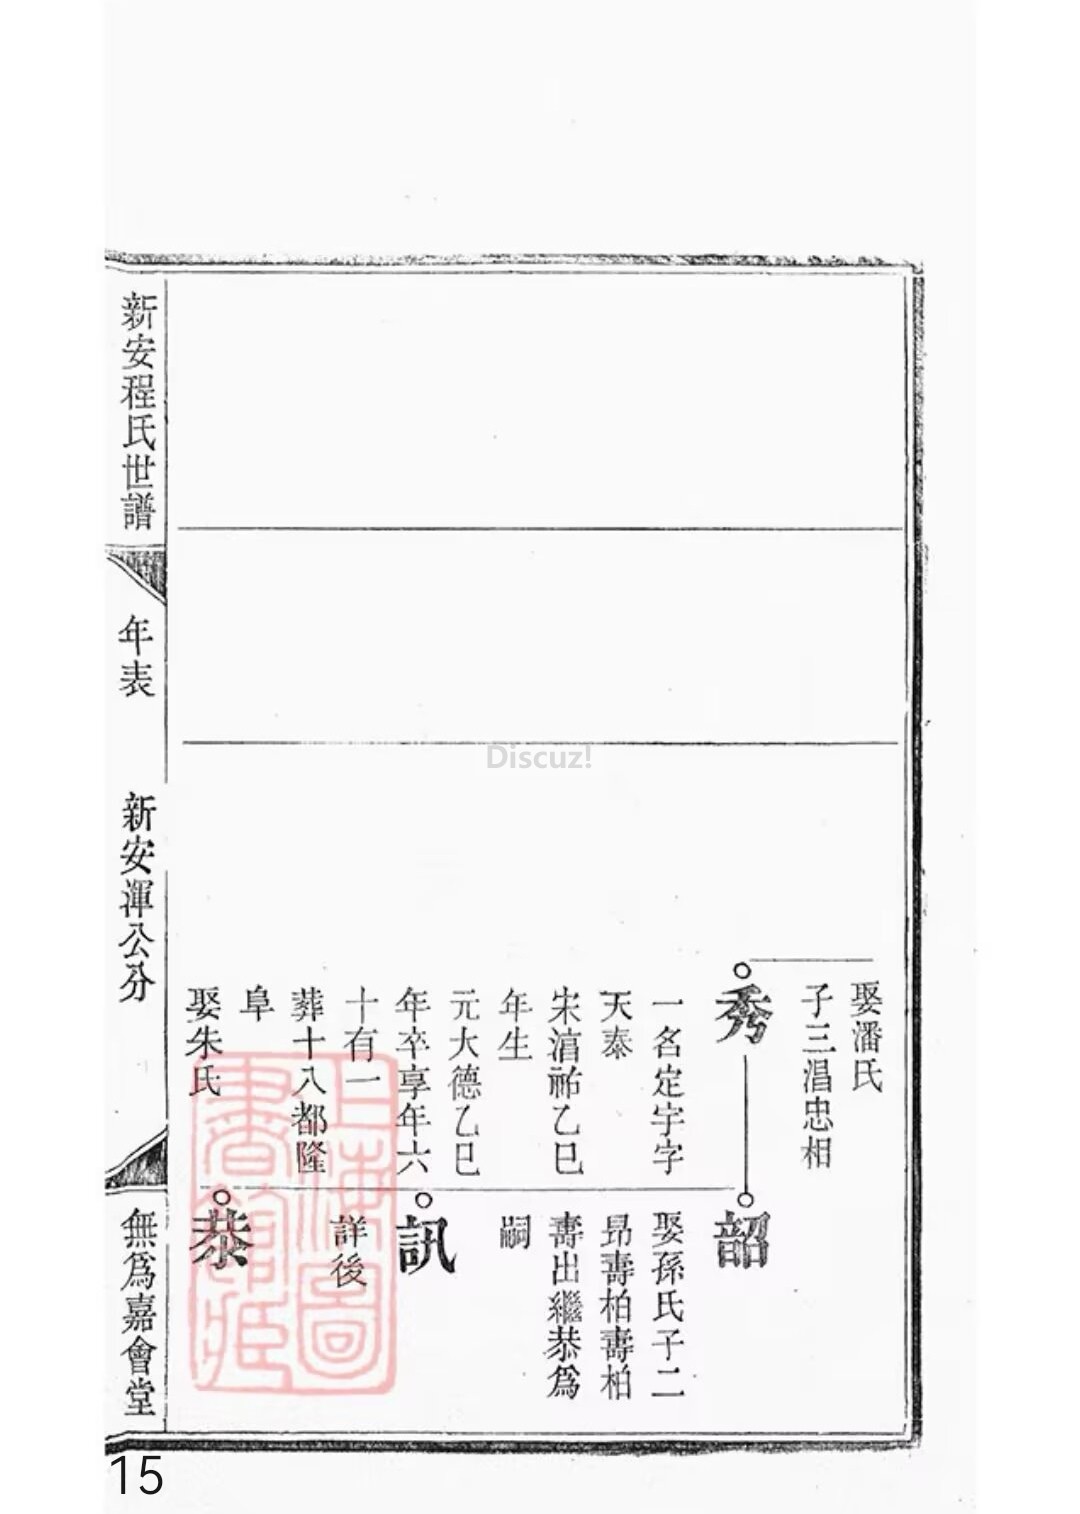 娶潘氏
子三淐忠相
秀
一名定宇字
天泰
宋湻祐乙巳
年生
元大德乙巳
年卒享年六
十有一
葬十八都隆
阜
娶朱氏
韶
娶孫氏子二
昂壽柏壽柏
壽出繼恭爲
嗣
訊
詳後
恭
新安程氏世譜
年表
新安渾公分
無爲嘉會堂
上海圖
書館藏
Discuz!
15